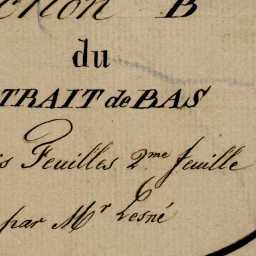 ction B
du
TRAIT de BAS
is Feuilles 2me feuille
par Mr Lesné